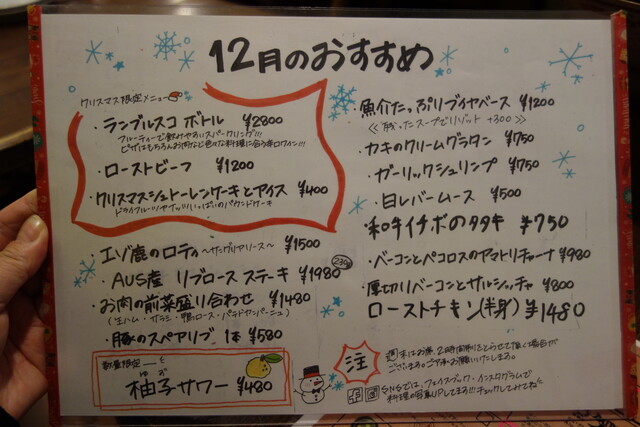 12月のおすすめ
クリスマス限定メニュー
・ランブルスコ ボトル ¥2800
フルーティーで飲みやすいスパークリング!!!
ピザはもちろんお肉など色々な料理に合う赤ワイン!!!
・ローストビーフ ¥1200
・クリスマスシュトーレンケーキとアイス ¥400
ドライフルーツやナッツいっぱいのパウンドケーキ
・エゾ鹿のロティ 〜サングリアソース〜 ¥1500
・AUS産 リブロース ステーキ ¥1980 230g
・お肉の前菜盛り合わせ ¥1480
(生ハム・サラミ・鴨ロース・パテドカンパーニュ)
・豚のスペアリブ 1本 ¥580
数量限定
ゆず
柚子サワー ¥480
・魚介たっぷりブイヤベース ¥1200
≪残ったスープでリゾット +300≫
・カキのクリームグラタン ¥750
・ガーリックシュリンプ ¥750
・白レバームース ¥500
・和牛イチボのタタキ ¥750
・ベーコンとペコロスのアマトリチャーナ ¥980
・厚切りベーコンとサルシッチャ ¥800
・ローストチキン(半身) ¥1480
注
週末はお席、2時間制とさせて頂く場合が
ございます。ご了承お願いいたします。
SNSでは、フェイスブック・インスタグラムで
料理の写真UPしてます!!!チェックしてみてね